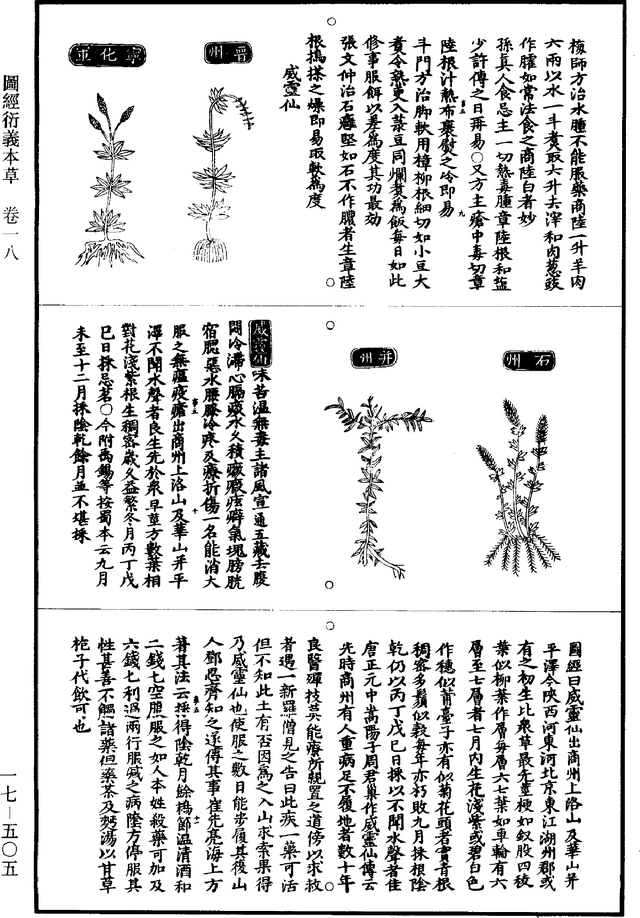 圖經衍義本草 卷一八
梅師方治水腫不能服藥商陸一升羊肉
六兩以水一斗煮取六升去滓和肉葱豉
作臛如常法食之商陸白者妙
孫真人食忌主一切熱毒腫章陸根和盐
少許傅之日再易○又方主瘡中毒切章
陸根汁熱布裹熨之冷即易
斗門方治脚軟用樟柳根細切如小豆大
煮令熟更入菉豆同爛煑為飯每日如此
修事服餌以差為度其功最効
張文仲治石癰堅如石不作膿者生章陸
根搗搽之燥即易取軟為度
威靈仙
晋州
寧化軍
石州
并州
威靈仙味苦温無毒主諸風宣通五藏去腹
閟冷滯心膈痰水久積癥瘕痃癖氣塊膀胱
宿膿惡水腰膝冷疼及療折傷一名能消久
服之無瘟疫瘧出商州上洛山及華山并平
澤不聞水聲者良生先於衆草莖方數葉相
對花淺紫根生稠密歲久益繁冬月丙丁戊
巳日採忌茗○今附禹錫等按蜀本云九月
末至十二月採陰乾餘月並不堪採
圖經曰威靈仙出商州上洛山及華山并
平澤今陜西河東河北京東江湖州郡或
有之初生比衆草最先莖梗如釵股四稜
葉似柳葉作層每層六七葉如車輪有六
層至七層者七月内生花淺紫或碧白色
作穗似莆臺子亦有似菊花頭者實青根
稠密多鬚似穀每年亦朽敗九月採根陰
乾仍以丙丁戊巳日採以不聞水聲者佳
唐正元中嵩陽子周君巢作威靈仙傳云
先時商州有人重病足不履地者數十年
良醫殫技莫能療所親置之道傍以求救
者遇一新羅僧見之告曰此疾一藥可活
但不知此土有否因為之入山求索果得
乃威靈仙也使服之數日能步履其後山
人鄧思齊知之遂傳其事崔元亮海上方
著其法云採得陰乾月餘搗篩温清酒和
二錢七空腹服之如人本性殺藥可加及
六錢七利過兩行服減之病除方停服其
性甚善不觸諸藥但藥茶及麪湯以甘草
梔子代飲可也
一七—五〇五